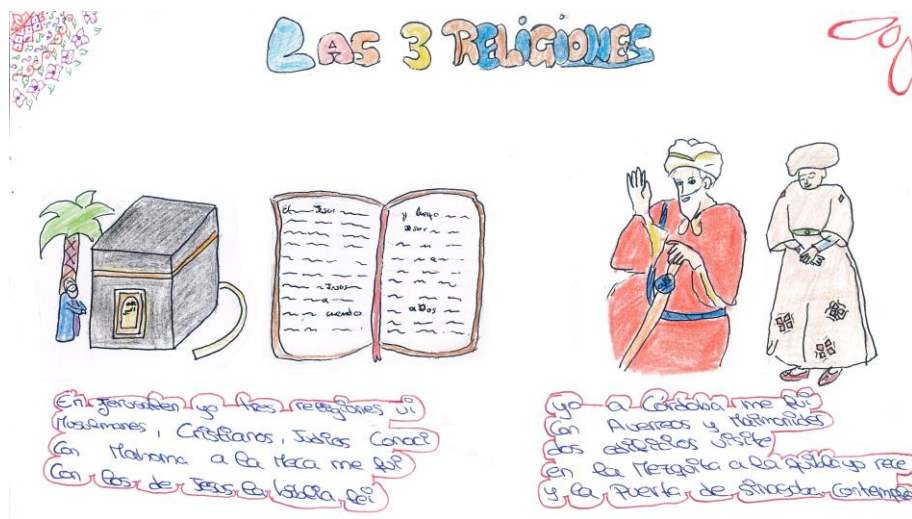 LAS 3 RELIGIONES
El Jesus
Jesos
a
cuando
y luego
Jesus
a
a Dios
En Jerusalen yo tres religiones vi
Musulmanes, Cristianos, Judios Conoci
Con Mahoma a la Meca me fui
Con los de Jesus la biblia lei
yo a Córdoba me fui
Con Averroes y Maimonides
dos edificios visite
en la Mezquita a la quibla yo rece
y la Puerta de sinagoba Contemple